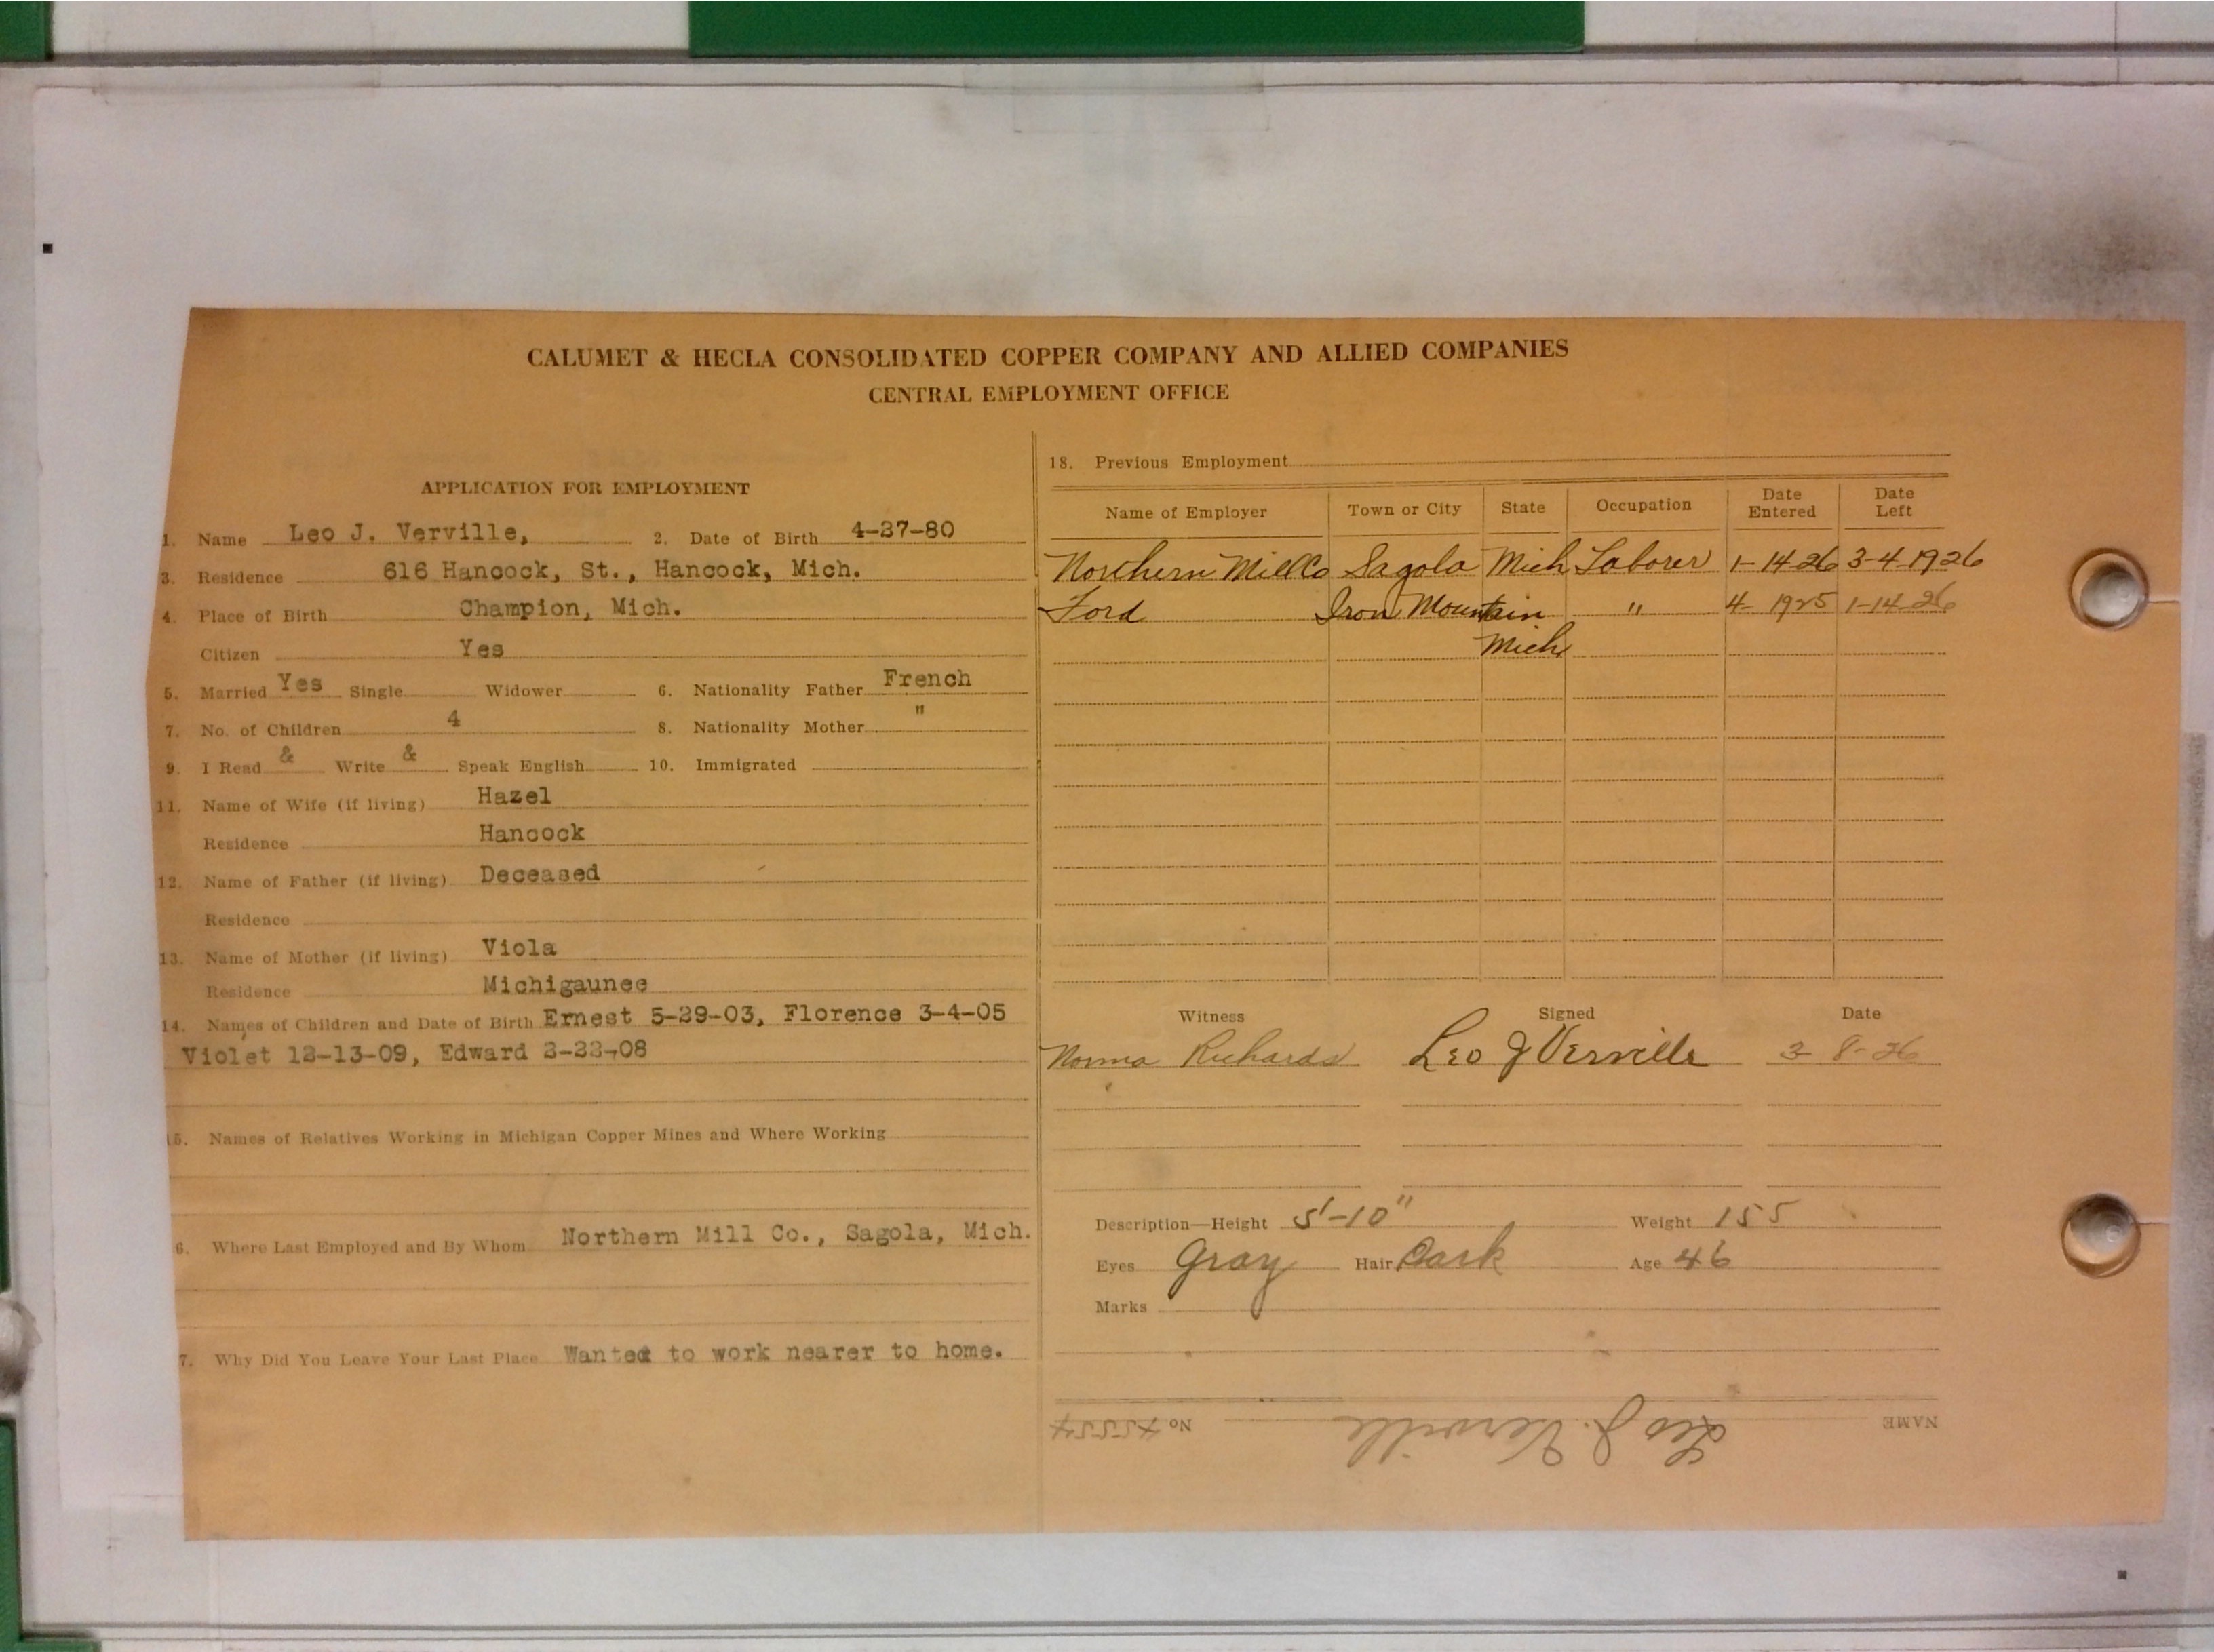 CALUMET & HECLA CONSOLIDATED COPPER COMPANY AND ALLIED COMPANIES
CENTRAL EMPLOYMENT OFFICE
APPLICATION FOR EMPLOYMENT
1. Name Leo J. Verville, 2. Date of Birth 4-27-80
3. Residence 616 Hancock, St., Hancock, Mich.
4. Place of Birth Champion, Mich.
Citizen Yes
5. Married Yes Single Widower 6. Nationality Father French
7. No. of Children 4 8. Nationality Mother "
9. I Read & Write & Speak English 10. Immigrated
11. Name of Wife (if living) Hazel
Residence Hancock
12. Name of Father (if living) Deceased
Residence
13. Name of Mother (if living) Viola
Residence Michigaunee
14. Names of Children and Date of Birth Ernest 5-29-03, Florence 3-4-05
Violet 12-13-09, Edward 2-23-08
15. Names of Relatives Working in Michigan Copper Mines and Where Working
6. Where Last Employed and By Whom Northern Mill Co., Sagola, Mich.
7. Why Did You Leave Your Last Place Wanted to work nearer to home.
18. Previous Employment
Name of Employer Town or City State Occupation Date Entered Date Left
Northern Mill Co Sagola Mich Laborer 1-14-26 3-4-1926
Ford Iron Mountain " 4- 1925 1-14-26
Mich
Witness Signed Date
Norma Richards Leo J Verville 3-8-26
Description—Height 5'-10" Weight 155
Eyes Gray Hair Dark Age 46
Marks
NAME Leo J. Verville No 45554